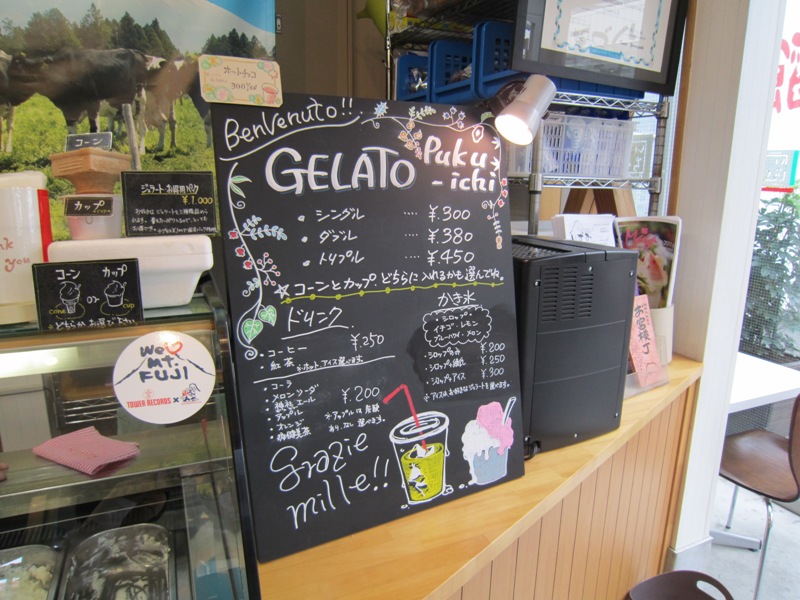 ホットチョコ
300yen
コーン
カップ
ジェラート・お持帰りパック
¥1,000
コーン カップ
or
CONE CUP
どちらかお選び下さい
We ♥
Mt.
FUJI
TOWER RECORDS ×
Benvenuto!!
GELATO Puku
-ichi
・シングル ‥‥ ¥.300
・ダブル ‥‥ ¥.380
・トリプル ‥‥ ¥.450
☆コーンとカップ、どちらに入れるかも選んでね。
ドリンク
・コーヒー ¥250
・紅茶 ※ホット、アイス選べます。
・コーラ
・メロンソーダ ¥.200
・神社エール
・アップル
・オレンジ
※アップルは炭酸
あり、なし選べます。
かき氷
・シロップ・
イチゴ・レモン
ブルーハワイ・メロン
・シロップのみ ¥200
・シロップ&練乳 ¥250
・シロップ&アイス ¥300
※アイスはお好きなジェラートを選べます。
Grazie
mille!!
お宮横丁
nk
you